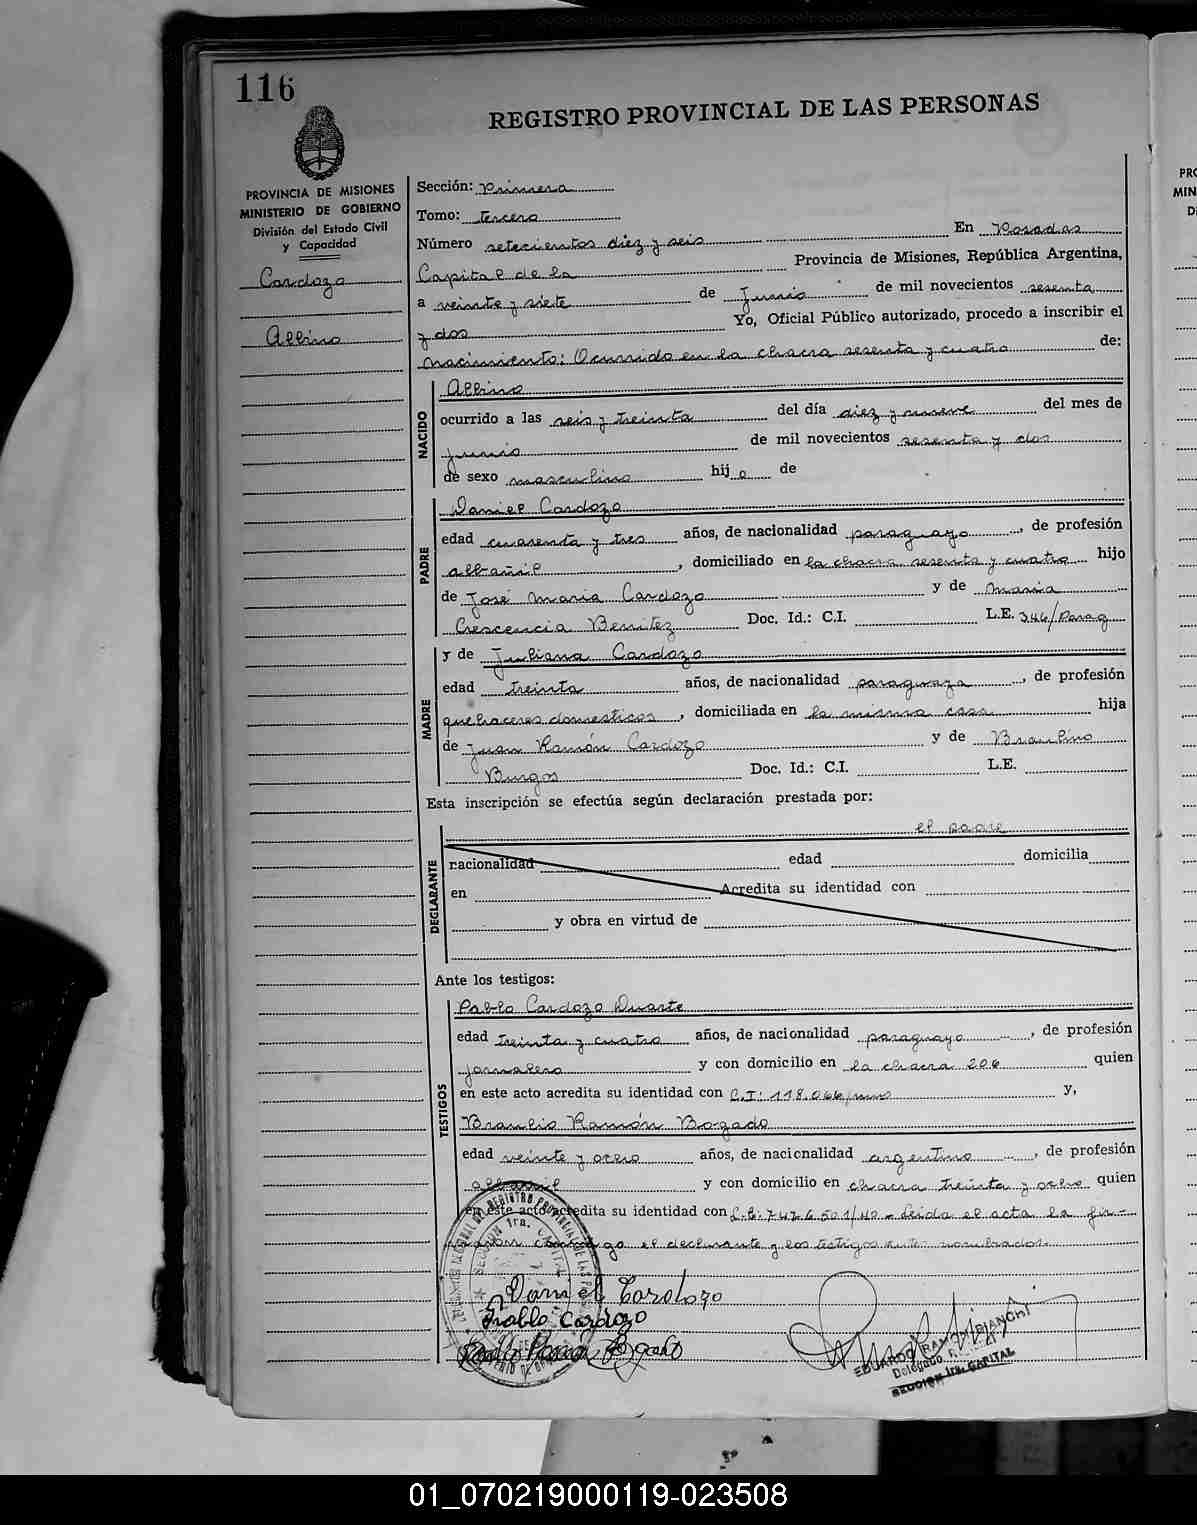 116
REGISTRO PROVINCIAL DE LAS PERSONAS
PROVINCIA DE MISIONES
MINISTERIO DE GOBIERNO
División del Estado Civil
y Capacidad
Cardozo
Albino
Sección: Primera
Tomo: tercero
Número setecientos diez y seis En Posadas
Capital de la Provincia de Misiones, República Argentina,
a veinte y siete de Junio de mil novecientos sesenta
y dos Yo, Oficial Público autorizado, procedo a inscribir el
nacimiento: Ocurrido en la chacra sesenta y cuatro de:
NACIDO
Albino
ocurrido a las seis y treinta del día diez y nueve del mes de
junio de mil novecientos sesenta y dos
de sexo masculino hijo de
PADRE
Daniel Cardozo
edad cuarenta y tres años, de nacionalidad paraguayo, de profesión
albañil, domiciliado en la chacra sesenta y cuatro hijo
de José Maria Cardozo y de Maria
Crescencia Benitez Doc. Id.: C.I. L.E. 346/Parag
MADRE
y de Juliana Cardozo
edad treinta años, de nacionalidad paraguaya, de profesión
quehaceres domesticos, domiciliada en la misma casa hija
de Juan Ramón Cardozo y de Braulina
Burgos Doc. Id.: C.I. L.E.
Esta inscripción se efectúa según declaración prestada por:
el padre
DECLARANTE
nacionalidad edad domicilia
en Acredita su identidad con
y obra en virtud de
Ante los testigos:
TESTIGOS
Pablo Cardozo Duarte
edad treinta y cuatro años, de nacionalidad paraguayo, de profesión
jornalero y con domicilio en la chacra 206 quien
en este acto acredita su identidad con C.I: 118.066/mnes y,
Braulio Ramón Bogado
edad veinte y ocho años, de nacionalidad argentino, de profesión
albañil y con domicilio en chacra treinta y ocho quien
en este acto acredita su identidad con L.E: 7.476.501/40 - Leida el acta la fir-
man conmigo el declarante y los testigos antes nombrados
Daniel Cardozo
Pablo Cardozo
EDUARDO RAMON BIANCHI
SECCION 1ra. CAPITAL
01_070219000119-023508